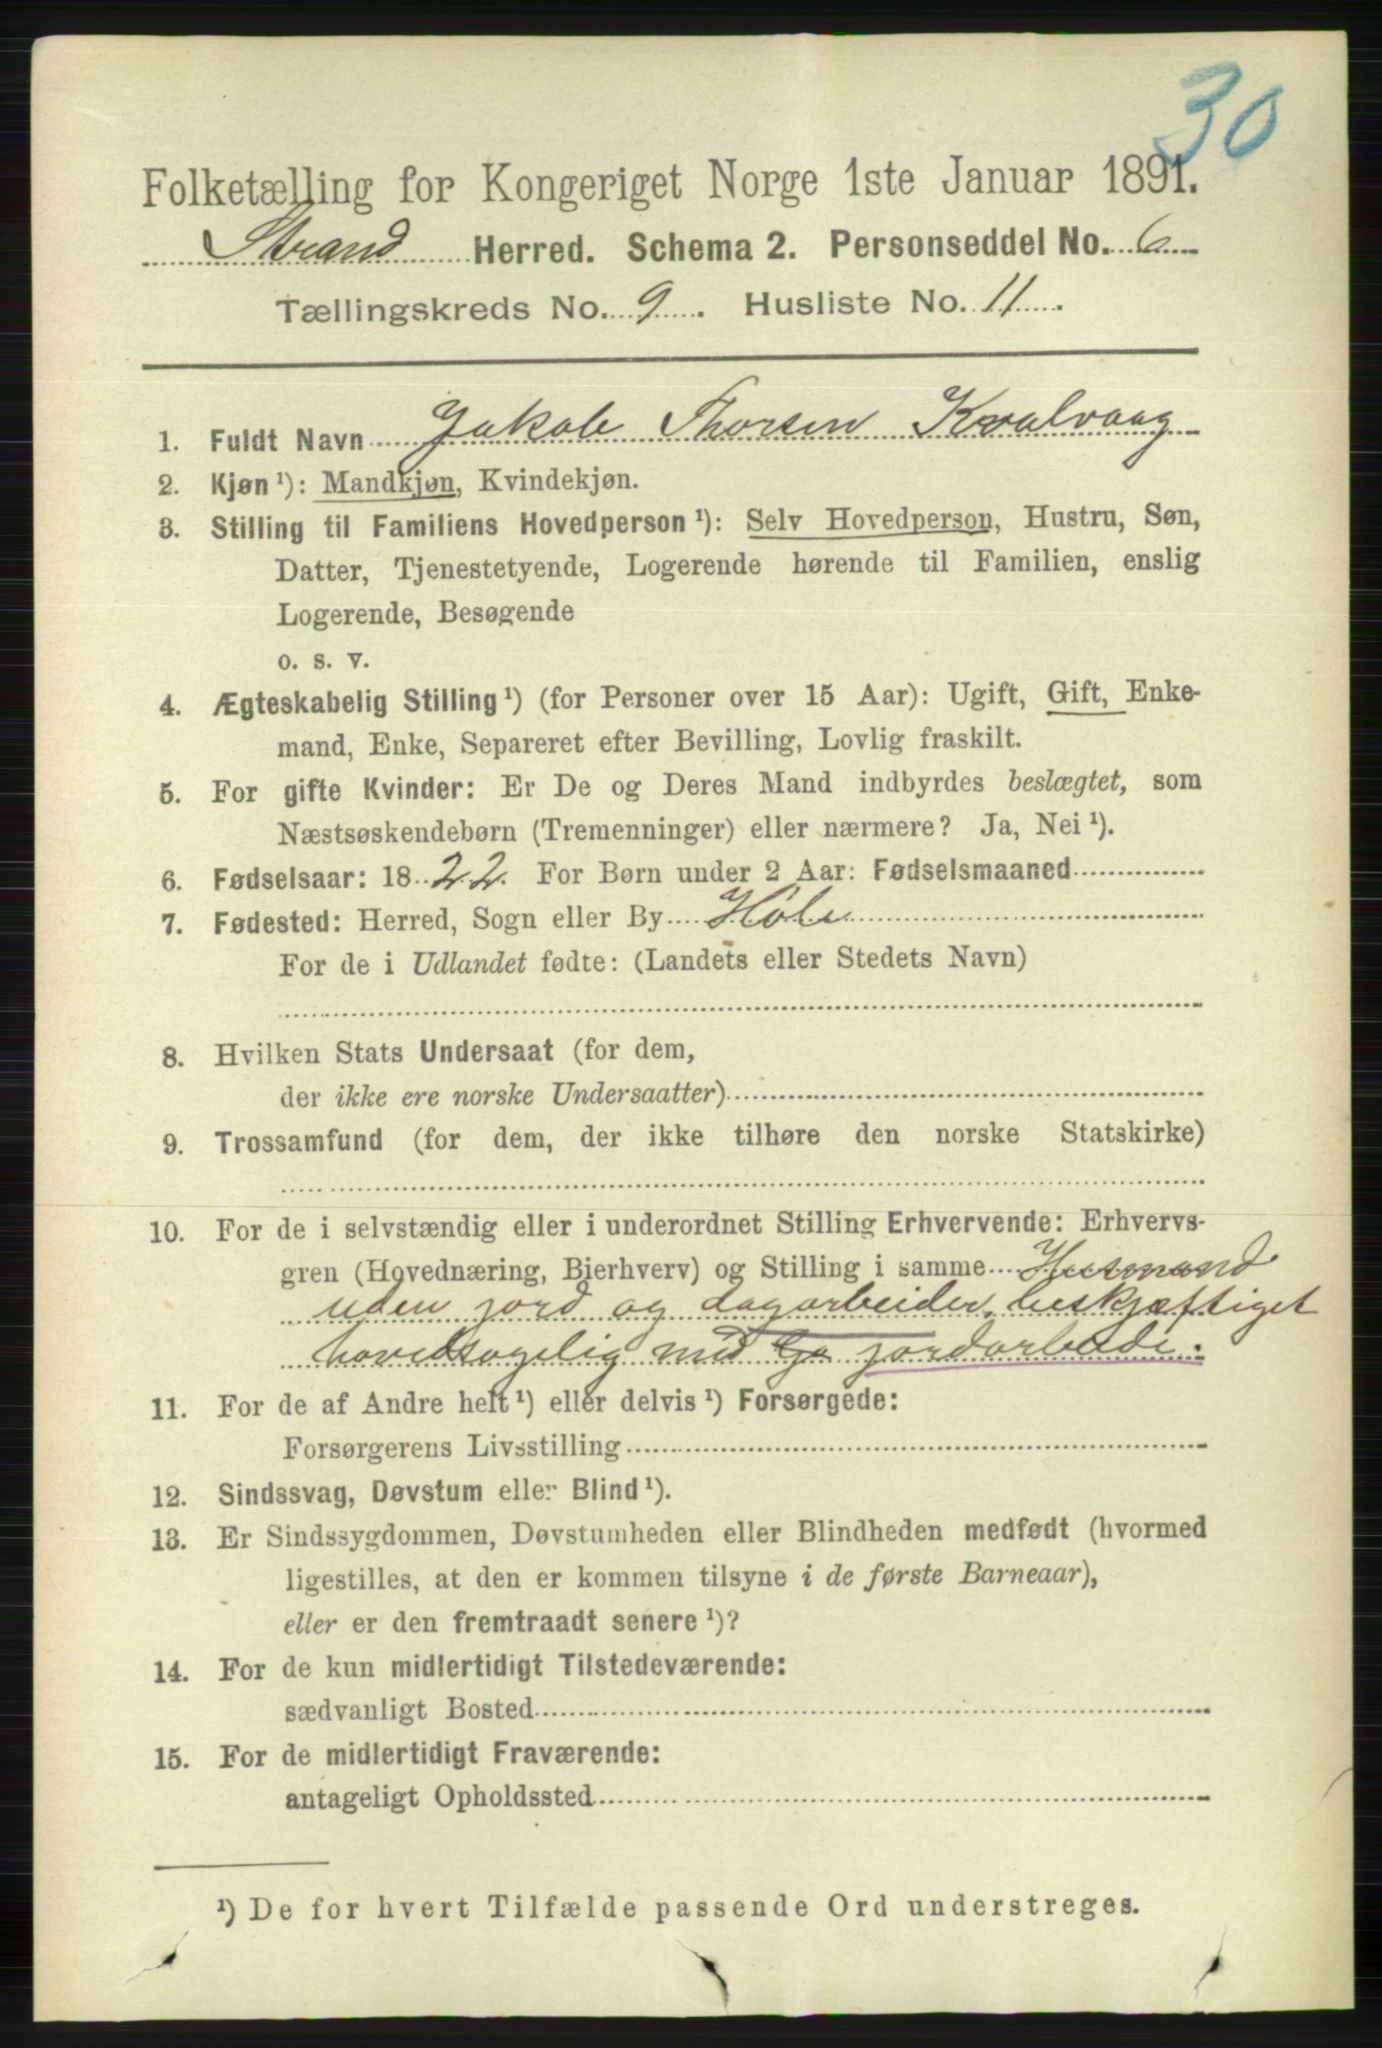 30
Folketælling for Kongeriget Norge 1ste Januar 1891.
Strand Herred. Schema 2. Personseddel No. 6
Tællingskreds No. 9. Husliste No. 11.
1. Fuldt Navn Jakob Thorsen Kvalvaag
2. Kjøn ¹): Mandkjøn, Kvindekjøn.
3. Stilling til Familiens Hovedperson ¹): Selv Hovedperson, Hustru, Søn,
Datter, Tjenestetyende, Logerende hørende til Familien, enslig
Logerende, Besøgende
o. s. v.
4. Ægteskabelig Stilling ¹) (for Personer over 15 Aar): Ugift, Gift, Enke-
mand, Enke, Separeret efter Bevilling, Lovlig fraskilt.
5. For gifte Kvinder: Er De og Deres Mand indbyrdes beslægtet, som
Næstsøskendebørn (Tremenninger) eller nærmere? Ja, Nei ¹).
6. Fødselsaar: 1822. For Børn under 2 Aar: Fødselsmaaned
7. Fødested: Herred, Sogn eller By Höle
For de i Udlandet fødte: (Landets eller Stedets Navn)
8. Hvilken Stats Undersaat (for dem,
der ikke ere norske Undersaatter)
9. Trossamfund (for dem, der ikke tilhøre den norske Statskirke)
10. For de i selvstændig eller i underordnet Stilling Erhvervende: Erhvervs-
gren (Hovednæring, Bierhverv) og Stilling i samme Husmand
uden jord og dagarbeider, beskjæftiget
hovedsagelig med jordarbeide.
11. For de af Andre helt ¹) eller delvis ¹) Forsørgede:
Forsørgerens Livsstilling
12. Sindssvag, Døvstum eller Blind ¹).
13. Er Sindssygdommen, Døvstumheden eller Blindheden medfødt (hvormed
ligestilles, at den er kommen tilsyne i de første Barneaar),
eller er den fremtraadt senere ¹)?
14. For de kun midlertidigt Tilstedeværende:
sædvanligt Bosted
15. For de midlertidigt Fraværende:
antageligt Opholdssted
¹) De for hvert Tilfælde passende Ord understreges.